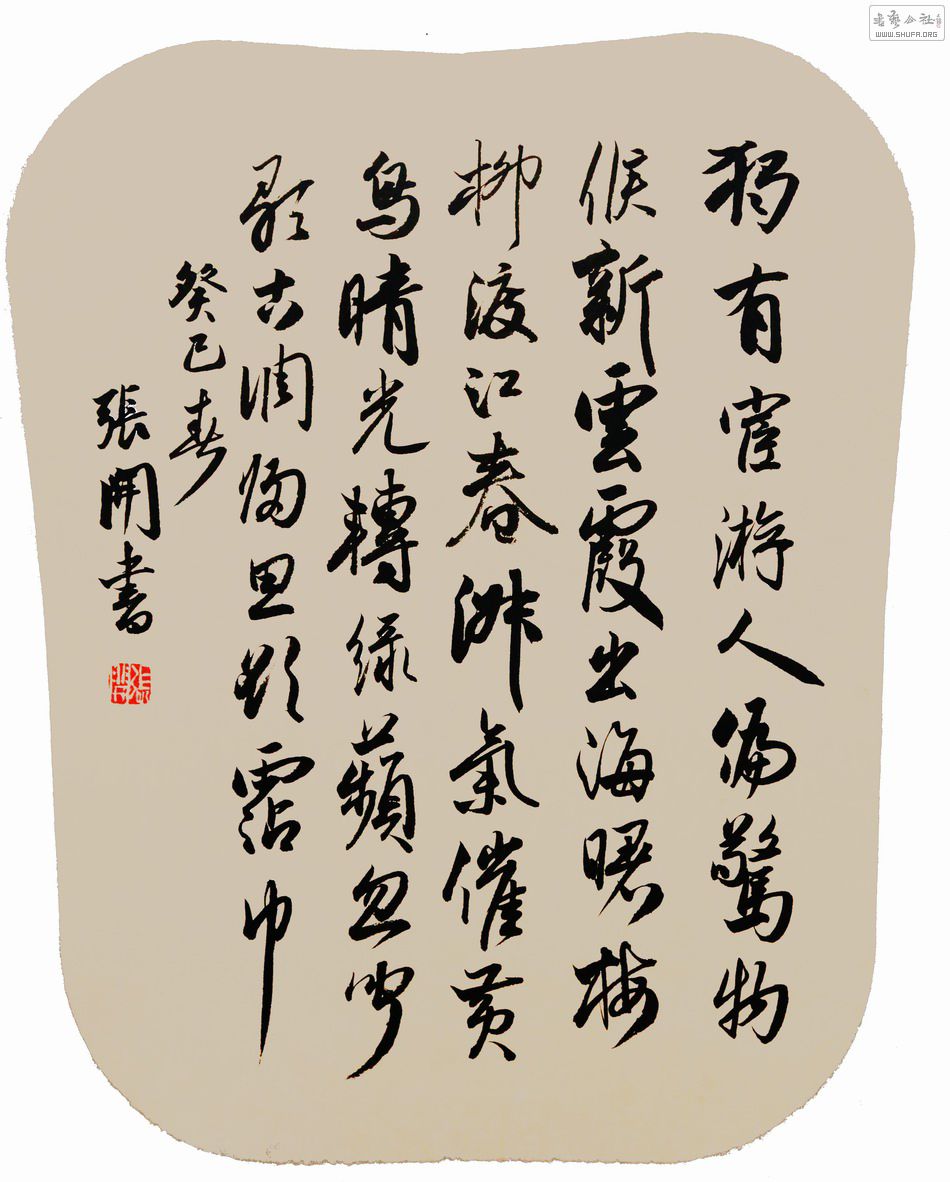 獨有宦游人偏驚物
候新雲霞出海曙梅
柳渡江春淑氣催黃
鳥晴光轉緑蘋忽聞
歌古調歸思欲霑巾
癸巳春
張開書
張開
書藝公社
WWW.SHUFA.ORG